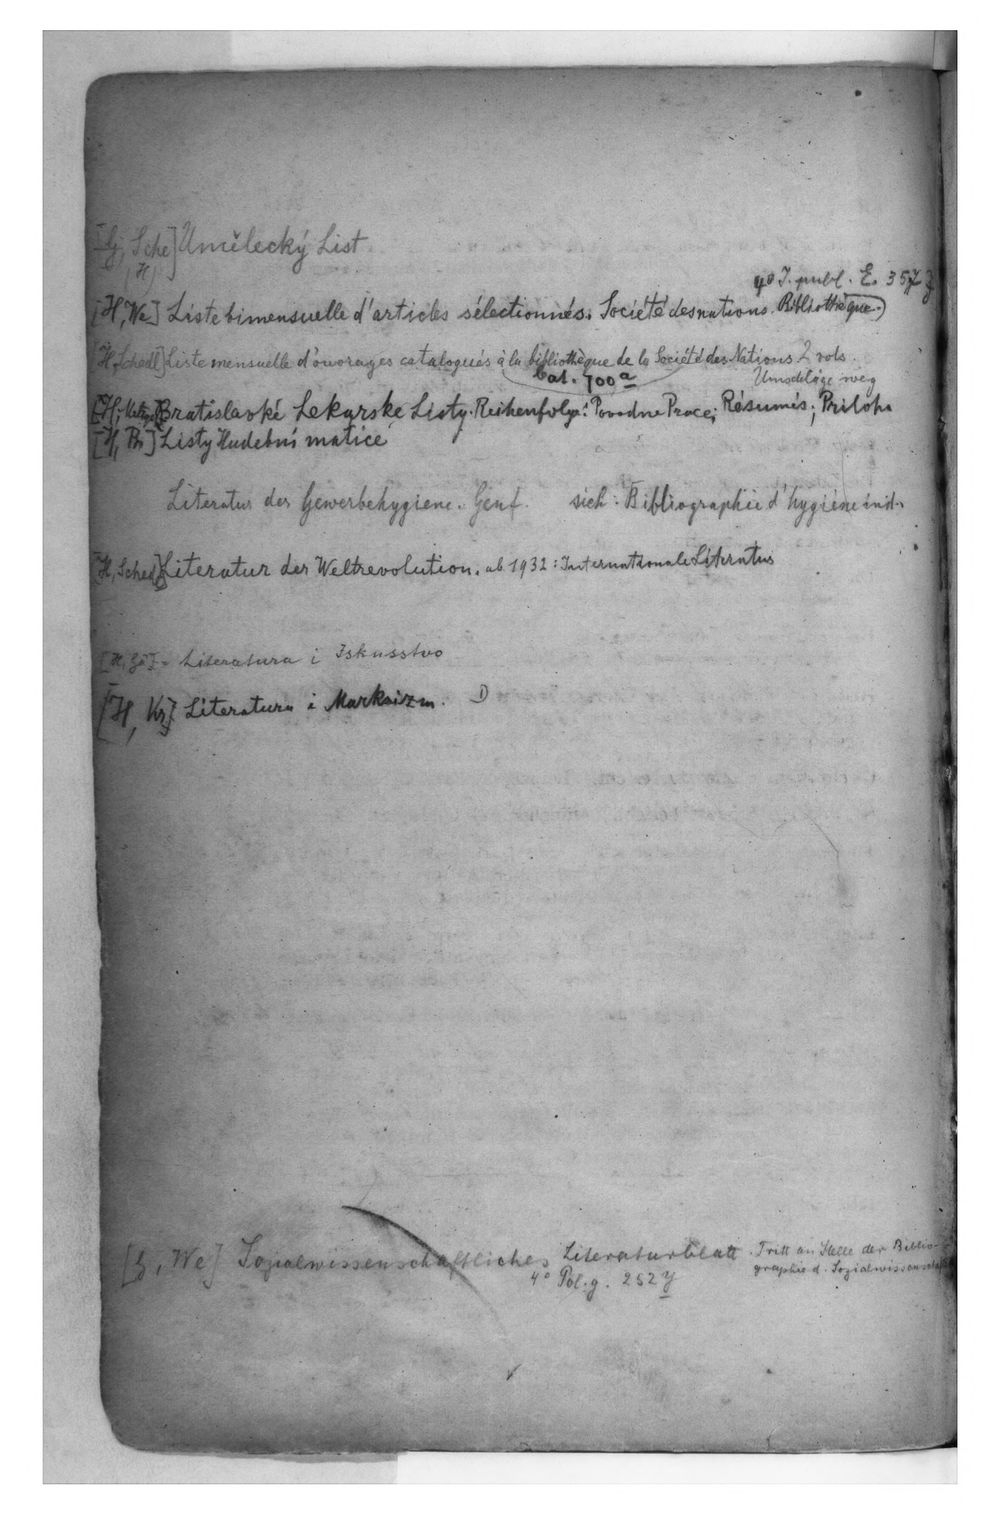 [G, Sche] Umělecký List
(H)
4º J. publ. E. 357 z
[H, We] Liste bimensuelle d'articles sélectionnés. Société des nations. Bibliothèque.)
[H, Schedl] Liste mensuelle d'ouvrages catalogués à la bibliothèque de la Société des Nations 2 vols.
Cat. 700ª
Umschläge weg
Bratislavké Lekarské Listy. Reihenfolge: Povodne Prace; Résumés; Priloh.
[H, Th] Listy Hudební matice
Literatur der Gewerbehygiene. Genf. sieh: Bibliographie d'hygiène ind.
[H, Sched] Literatur der Weltrevolution. ab 1932: Internationale Literatur
Literatura i Iskusstvo
[H, Kr] Literatura i Marksizm. D
[G, We] Sozialwissenschaftliches Literaturblatt. Tritt an Stelle der Biblio-
graphie d. Sozialwissensch
4º Pol. g. 252 y